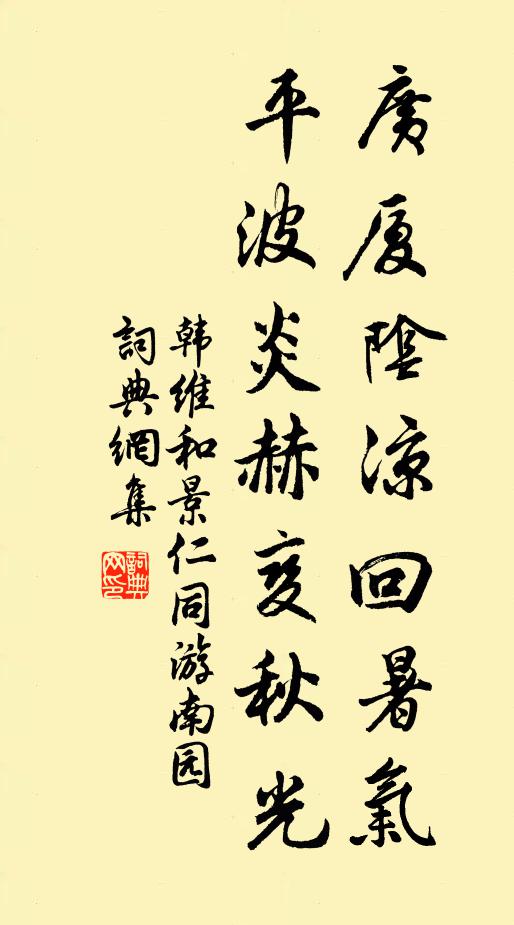 廣厦陰涼回暑氣
平波炎赫变秋光
韩維和景仁同游南园
詞典網集
詞典网印